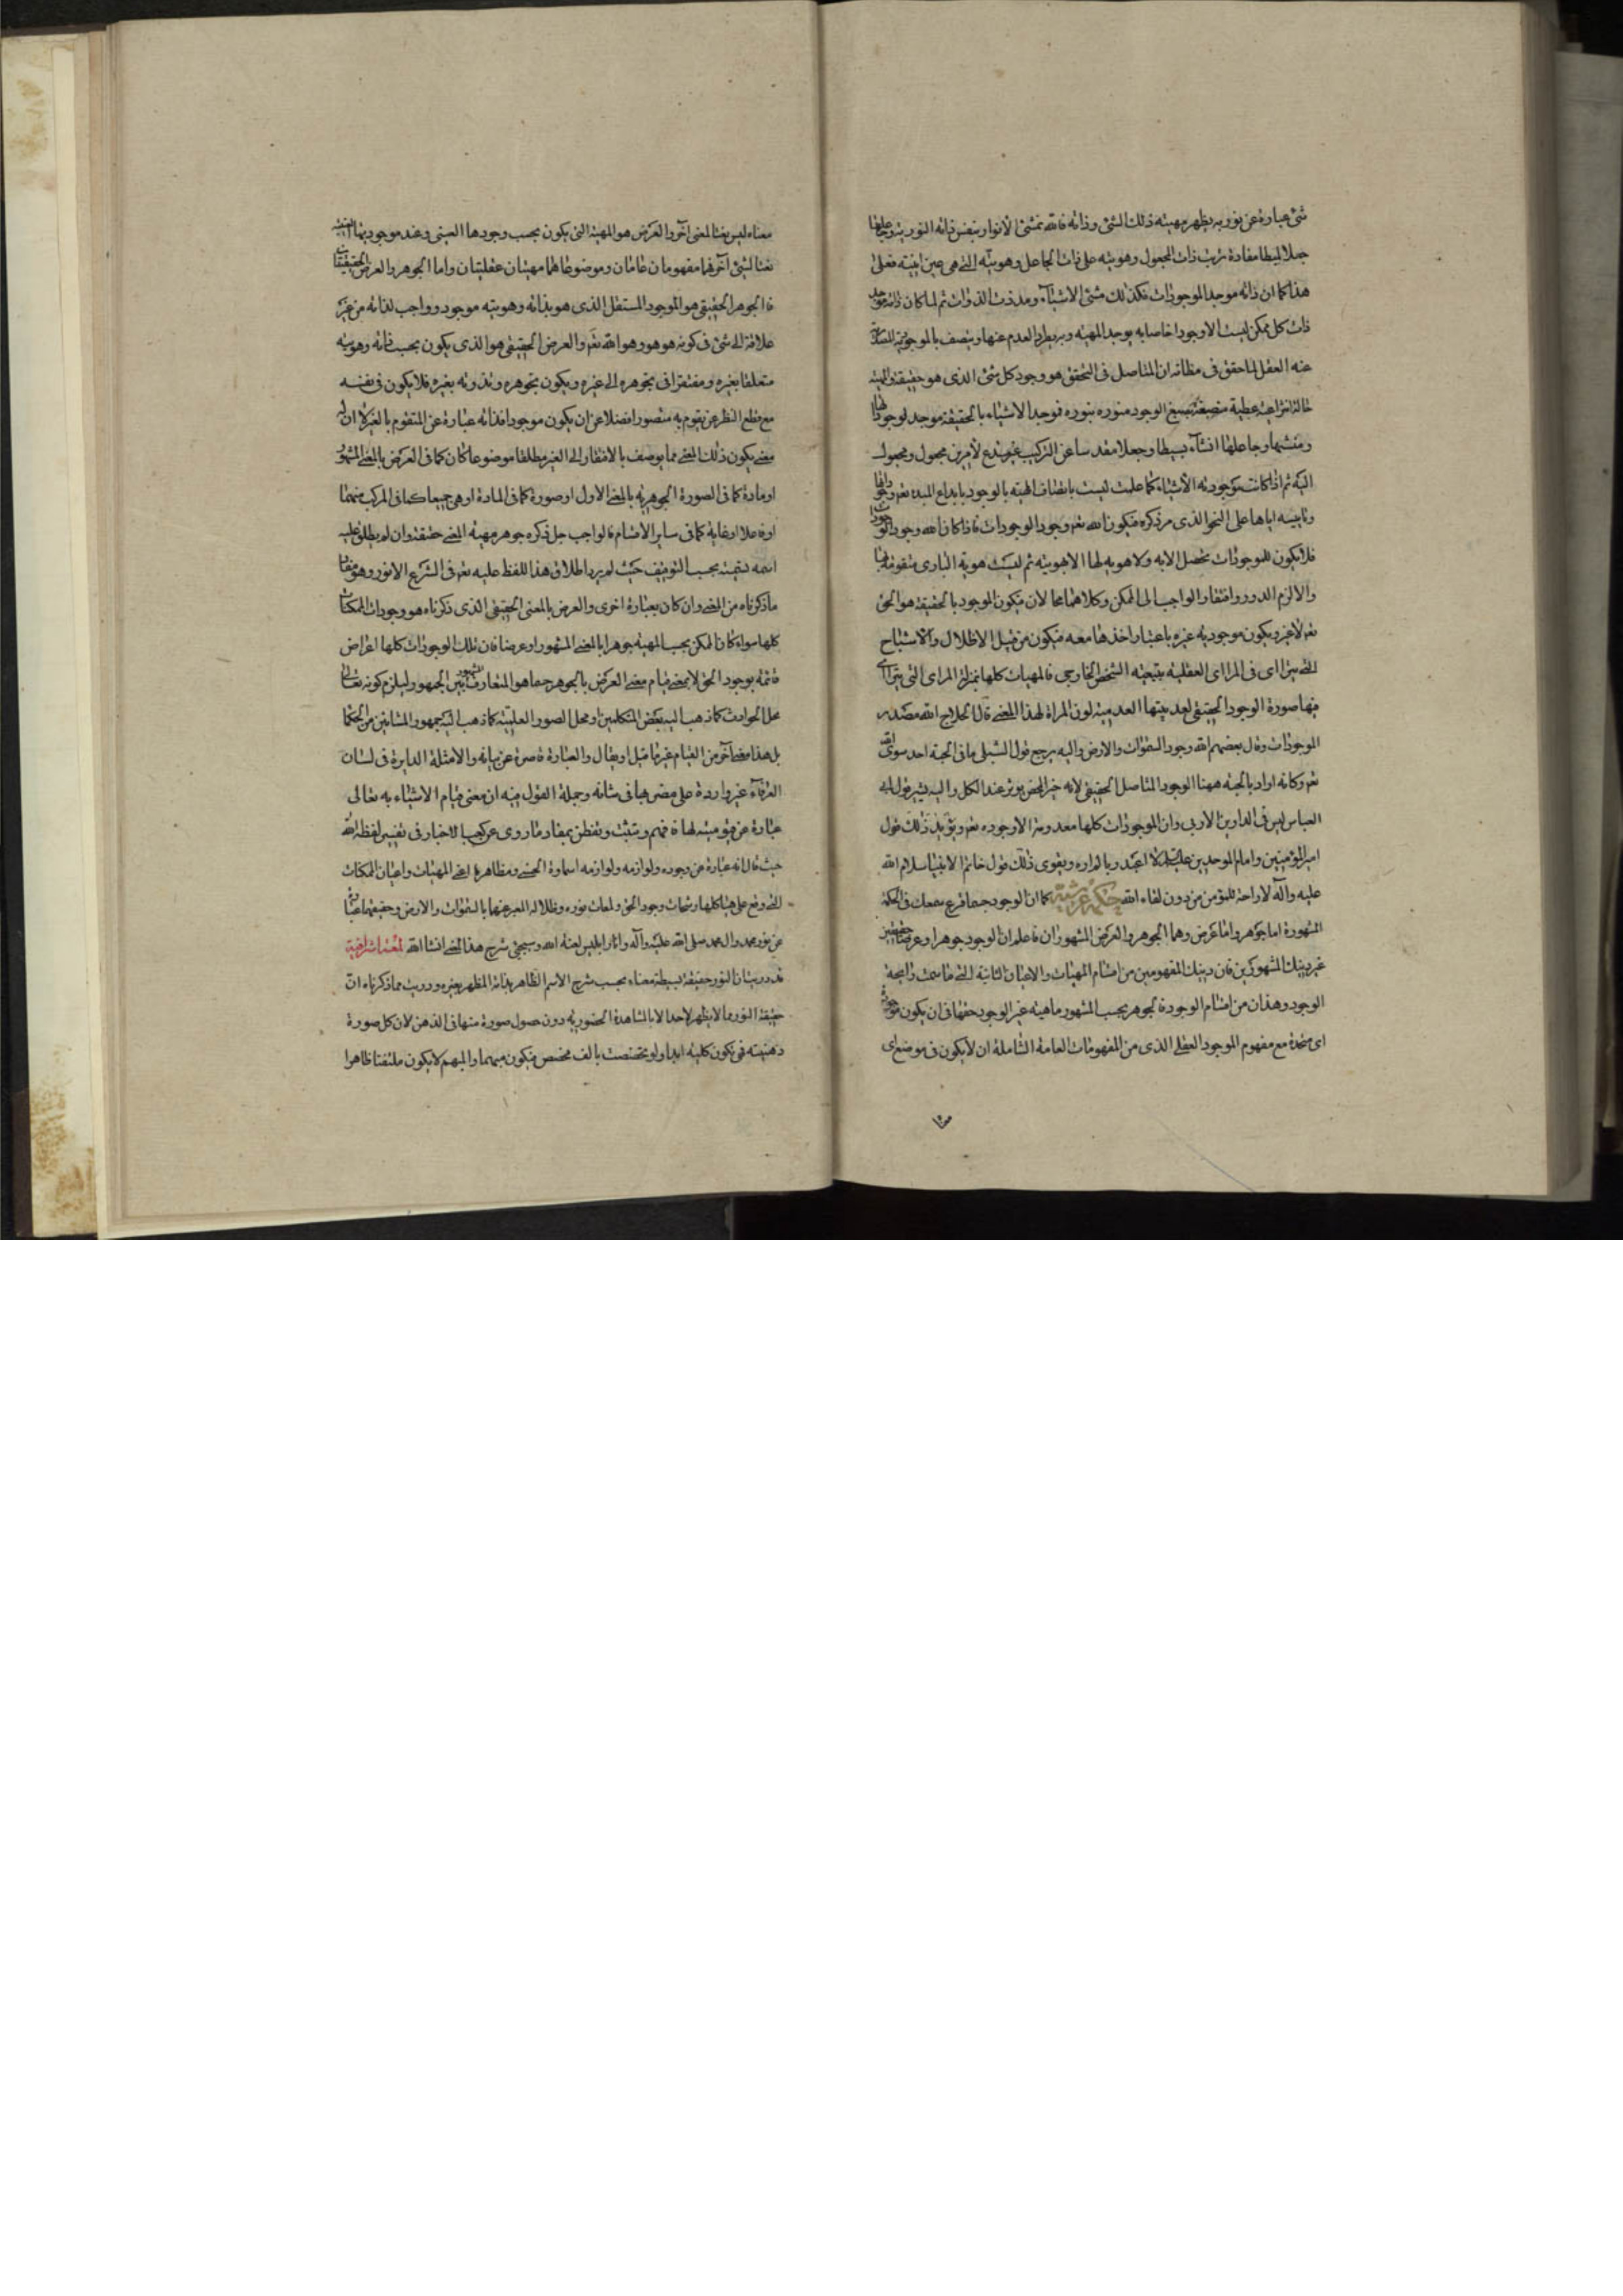 شئ عبارة عن نور به يظهر مهيته ذلك الشئ وذاته فالله منشئ الأنوار بنفس ذاته النورية وجاعلها
جعلا بسيطا مفادة ترتب ذات المجعول وهويته على ذات الجاعل وهويته التى هى عين انيته فعلى
هذا كما ان ذاته موجد الموجودات فكذلك منشئ الاشيآء ومذوت الذوات ثم لما كان ذاته موجد
ذات كل ممكن ليست الا وجودا خاصا به يوجد المهية وبه يطرد العدم عنها ويتصف بالموجودية
عنه العقل الماحق فى مظانه ان المتاصل فى التحقق هو وجود كل شئ الذى هو حقيقته والمهية
الوجود منوره بنوره فوجد الاشياء بالحقيقة موجد لوجوداتها
ومنشيها وجاعلها انشآء بسيطا وجعلا مقدسا عن التركيب غير مستدع لأمرين مجعول ومجعول
اليه ثم اذا كانت موجودية الأشياء كما علمت ليست باتصاف المهية بالوجود بل بابداع المبدء تعم
وتاييسه اياها على النحو الذى مر ذكره فيكون الله تعم وجود الوجودات فاذا كان الله وجود الوجودات
فلا يكون للموجودات تحصل الا به ولا هوية لها الا بهويته ثم ليست هوية البارى متقومة بها
والا لزم الدور وافتقار الواجب الى الممكن وكلاهما محالان فيكون الموجود بالحقيقة هو الحق
تعم لا غير ويكون موجودية غيره باعتبار اخذها معه فيكون من قبيل الاظلال والاشباح
التى يترااى فى المراى العقلية بتبعية الشخص الخارجى فالمهيات كلها بمنزلة المراى التى يتراآى
فيها صورة الوجود الحقيقى لعدميتها العدمية لون المراة لهذا المعنى قال الحلاج الله مصدر
الموجودات وقال بعضهم الله وجود السموات والارض واليه يرجع قول الشبلى ما فى الجبة احد سوى الله
تعم وكانه اراد بالجبة ههنا الوجود المتاصل الحقيقى لانه خير المحض يوثر عند الكل واليه يشير قول ابى
العباس ليس فى الدارين الا ربى وان الموجودات كلها معدومة الا وجوده تعم ويؤيد ذلك قول
امير المؤمنين وامام الموحدين عليه السلام لا اعبد ربا لم اره ويقوى ذلك قول خاتم الانبيا سلام الله
عليه وآله لا راحة للمؤمن من دون لقاء الله حكمة عرشية كما ان الوجود حسبما قرع سمعك فى الحكمة
المشهورة اما جوهر واما عرض وهما الجوهر والعرض المشهوران فاعلم ان الوجود جوهرا وعرضا حقيقيين
غير ذينك المشهورين فان ذينك المفهومين من اقسام المهيات والاعيان الثابتة التى ما شمت رايحة
الوجود وهذان من اقسام الوجود فالجوهر بحسب المشهور ماهية غير الوجود حقها فى ان يكون موجودة
اى متحدة مع مفهوم الموجود العقلى الذى من المفهومات العامة الشاملة ان لا يكون فى موضع اى
معناه ليس نعتا لمعنى آخر والعرض هو المهية التى يكون بحسب وجودها العينى وعند موجوديتها
نعتا لشئ آخر فهما مفهومان عامان وموضوعاهما مهيتان عقليتان واما الجوهر والعرض الحقيقيان
فالجوهر الحقيقى هو الموجود المستقل الذى هو بذاته وهويته موجود وواجب لذاته من غير
علاقة الى شئ فى كونه هو هو وهو الله تعم والعرض الحقيقى هو الذى يكون بحسب ذاته وهويته
متعلقا بغيره ومفتقرا فى تجوهره الى غيره ويكون تجوهره وتذوته بغيره فلا يكون فى نفسه
مع قطع النظر عن يقوم به متصورا فضلا عن ان يكون موجودا فذاته عبارة عن المتقوم بالغير لا ان له
معنى يكون ذلك المعنى مما يوصف بالافتقار الى الغير مطلقا موضوعا كان كما فى العرض بالمعنى المشهور
او مادة كما فى الصورة الجوهرية بالمعنى الاول او صورة كما فى المادة او هى جميعا كما فى المركب منهما
او فاعلا او غاية كما فى ساير الاقسام فالواجب جل ذكره جوهر مهية المعنى حقيقة وان لم يطلق عليه
اسمه بحسب التوقيف حيث لم يرد اطلاق هذا اللفظ عليه تعم فى الشرع الانور وهو مفاد
ما ذكرناه من المعنى وان كان بعبارة اخرى والعرض بالمعنى الحقيقى الذى ذكرناه هو وجودات الممكنات
كلها سواء كان الممكن بحسب المهية جوهرا بالمعنى المشهور او عرضا فان تلك الوجودات كلها اعراض
قائمة بوجود الحق لا بمعنى قيام معنى العرض بالجوهر حسبما هو المتعارف المشهور بين الجمهور ليلزم كونه تعالى
محل الحوادث كما ذهب اليه بعض المتكلمين او محل الصور العلمية كما ذهب اليه جمهور المشائين من الحكما
بل هذا معنى آخر من القيام غير ما قيل او يقال والعبارة قاصرة عن بيانه والامثلة الدايرة فى لسان
العرفآء غير واردة على فى شانه وجملة القول فيه ان معنى قيام الاشياء به تعالى
عبارة عن قيوميته لها فافهم وتثبت وتفطن بمفاد ما روى عن كعب الاخبار فى تفسير لفظة الله
حيث قال انه عبارة عن وجوده ولوازمه ولوازمه اسماؤه الحسنى ومظاهرها اعنى المهيات واعيان الممكنات
التى وقع على هياكلها رشحات وجود الحق ولمعات نوره وظلاله المعبر عنها بالسموات والارض وحقيقتهما
عن نور محمد وال محمد صلى الله عليه وآله واثار ابليس لعنة الله وسيجئ شرح هذا المعنى انشا الله لمعة اشراقية
قد دريت ان النور حقيقة بسيطة معناه بحسب شرح الاسم الظاهر بذاته المظهر بغيره ودريت مما ذكرناه ان
حقيقة النور مما لا يظهر لاحد الا بالمشاهدة الحضورية دون حصول صورة منها فى الذهن لان كل صورة
ذهنية فهى تكون كلية ابدا ولو تخصصت بالف مخصص فيكون مبهما والمبهم لا يكون ملتفتا ظاهرا